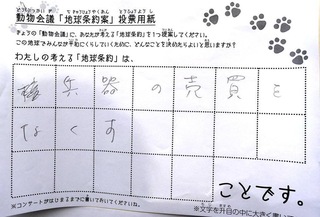 動物会議「地球条約案」投票用紙
きょうの「動物会議」に、あなたが考える「地球条約」を1つ提案してください。
この地球でみんなが平和にくらしていくために、どんなことを決めたらよいと思いますか?
わたしの考える「地球条約」は、
兵器の売買を
なくす
ことです。
※コンサートがはじまるまでに書いておいてくださいね。
※文字を升目の中に大きく書いて